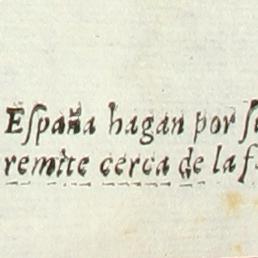 España hagan por
remite cerca de la